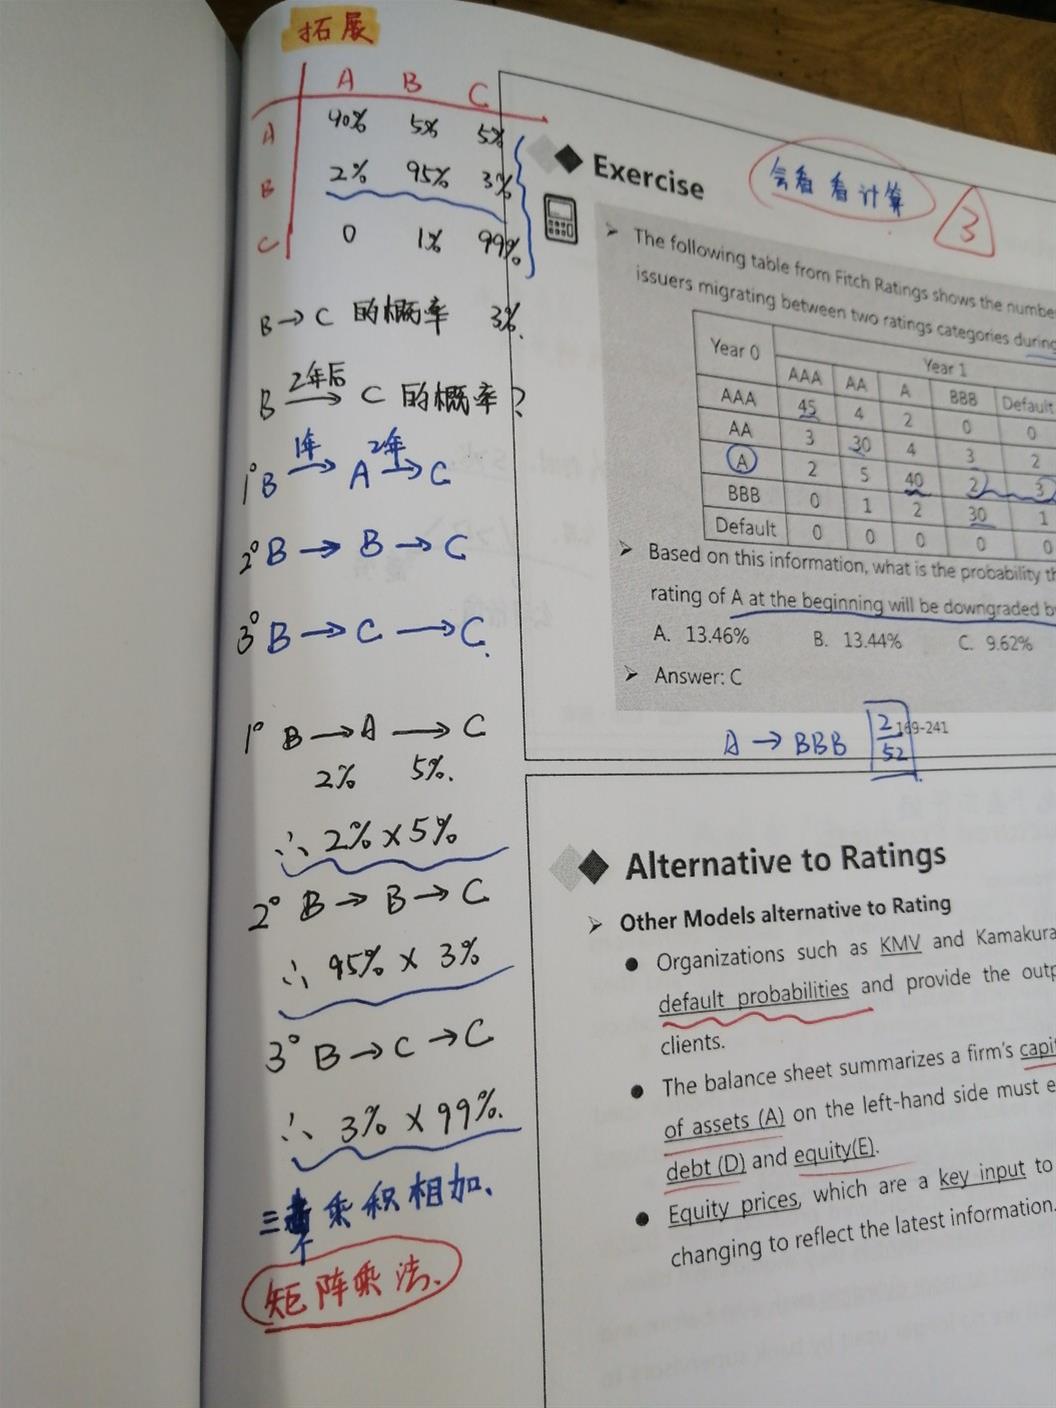 拓展
A B C
A 90% 5% 5%
B 2% 95% 3%
C 0 1% 99%
B → C 的概率 3%.
B 2年后→ C 的概率?
1° B 1年→ A 2年→ C
2° B → B → C
3° B → C → C.
1° B → A → C
2% 5%.
∴ 2% × 5%
2° B → B → C
∴ 95% × 3%
3° B → C → C
∴ 3% × 99%.
三个乘积相加、
矩阵乘法.
Exercise
会看看计算
3
The following table from Fitch Ratings shows the numbe
issuers migrating between two ratings categories during
Year 0 Year 1
AAA AA A BBB Default
AAA 45 4 2 0 0
AA 3 30 4 3 2
A 2 5 40 2 3
BBB 0 1 2 30 1
Default 0 0 0 0 0
Based on this information, what is the probability th
rating of A at the beginning will be downgraded b
A. 13.46% B. 13.44% C. 9.62%
Answer: C
169-241
A → BBB 2/52
Alternative to Ratings
Other Models alternative to Rating
Organizations such as KMV and Kamakura
default probabilities and provide the outp
clients.
The balance sheet summarizes a firm's capi
of assets (A) on the left-hand side must e
debt (D) and equity(E).
Equity prices, which are a key input to
changing to reflect the latest information.